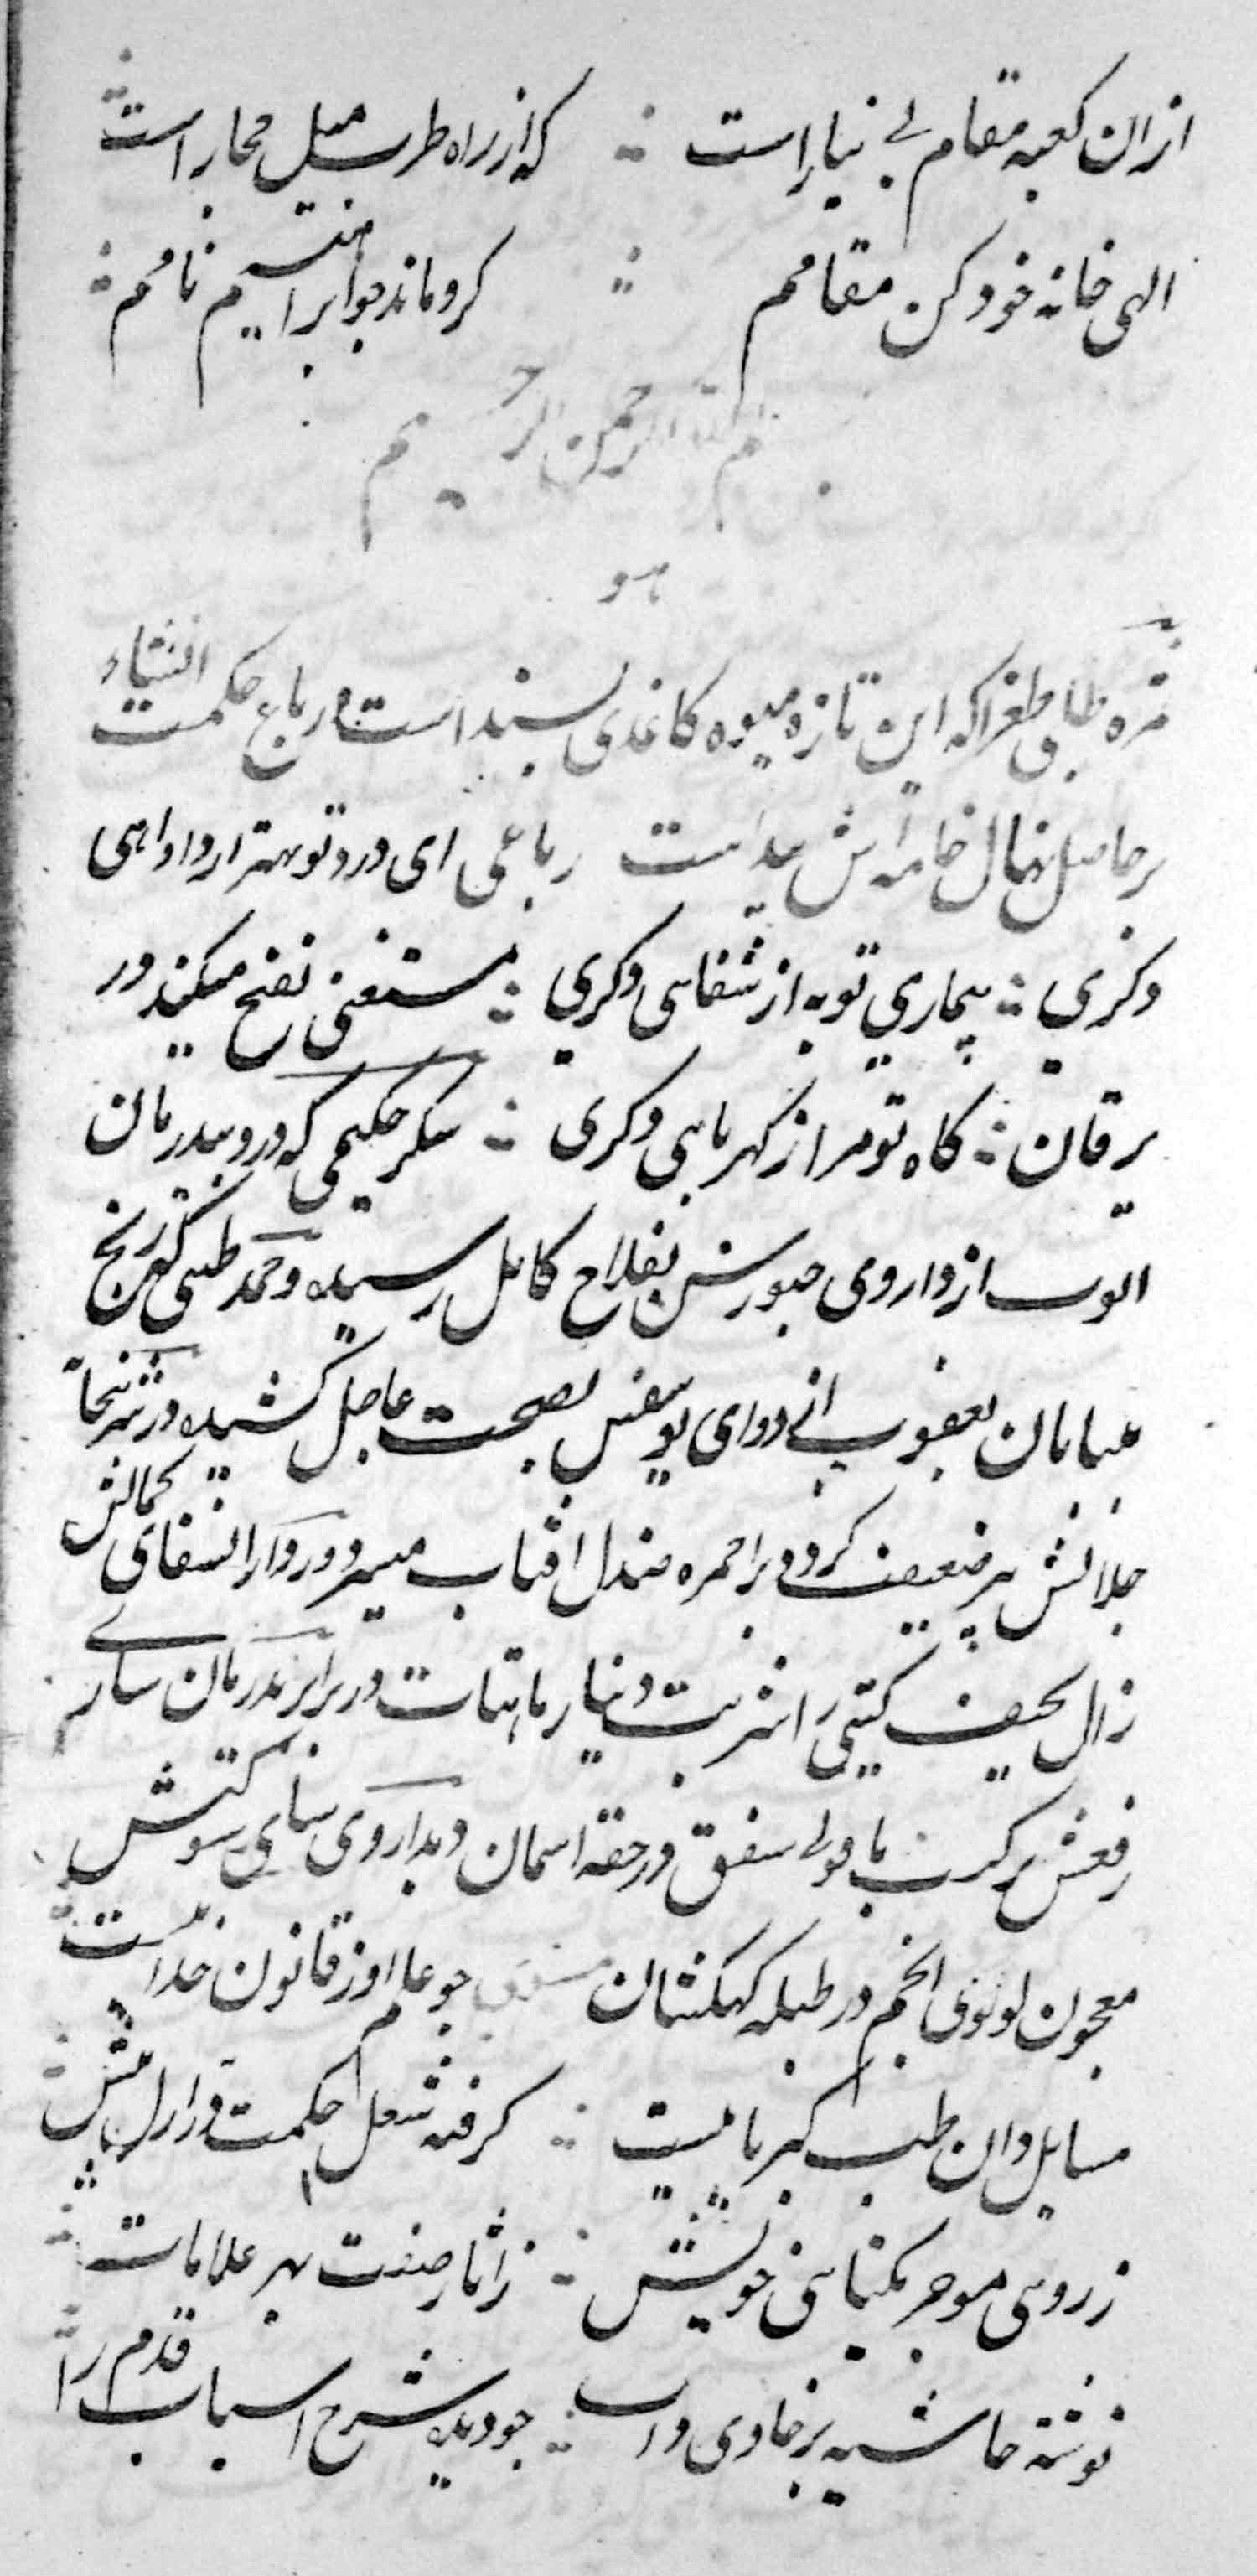 ازان کعبه مقام بی نیاز است ∴ که از راه طرب میل مجاز است
الهی خانه خود کن مقامم ∴ کروماند چو ابراهیم نامم
بسم الله الرحمن الرحیم
هو
ثمره طلبی طغرا که این تازه میوه کاغذی پسند است در باغ حکمت انشاء
بر حاصل نهال خامه اش رباعی ای درد تو بهتر از دواهای
دکری ∴ بیماری تو به از شفاهای دکری ∴ مستغنی نفخ میکند در
یرقان ∴ کاه تو مرا از کهربای دکری ∴ شکر حکیمی که درد بیدرمان
ایوب از داروی صبورش بفلاح کامل رسیده و حمد طبیبی که رنج
بیپایان یعقوب از دوای یوسفیش بصحت عاجل کشیده در
جلالش پیر ضعیف کردون را حمره صندل افتاب میسر و در دارالشفای کمالش
زال نحیف کیتی را شربت دینار ماهتاب در برابر بدرمان سازی
رفعش مرکب یاقوتی شفق در حقه اسمان و بداروی سوکتش
معجون لولوی انجم در طبله کهکشان مثنوی چو عالم از قانون خدائیست
مسایل دان طب کبریائیست ∴ کرفته شغل حکمت در ازل پیش
ز روی موجز یکتائی خویش ∴ ز اثار صنعت بهر علامات
نوشته حاشیه بر حاوی ذات ∴ چو دیده شرح اسباب قدم را